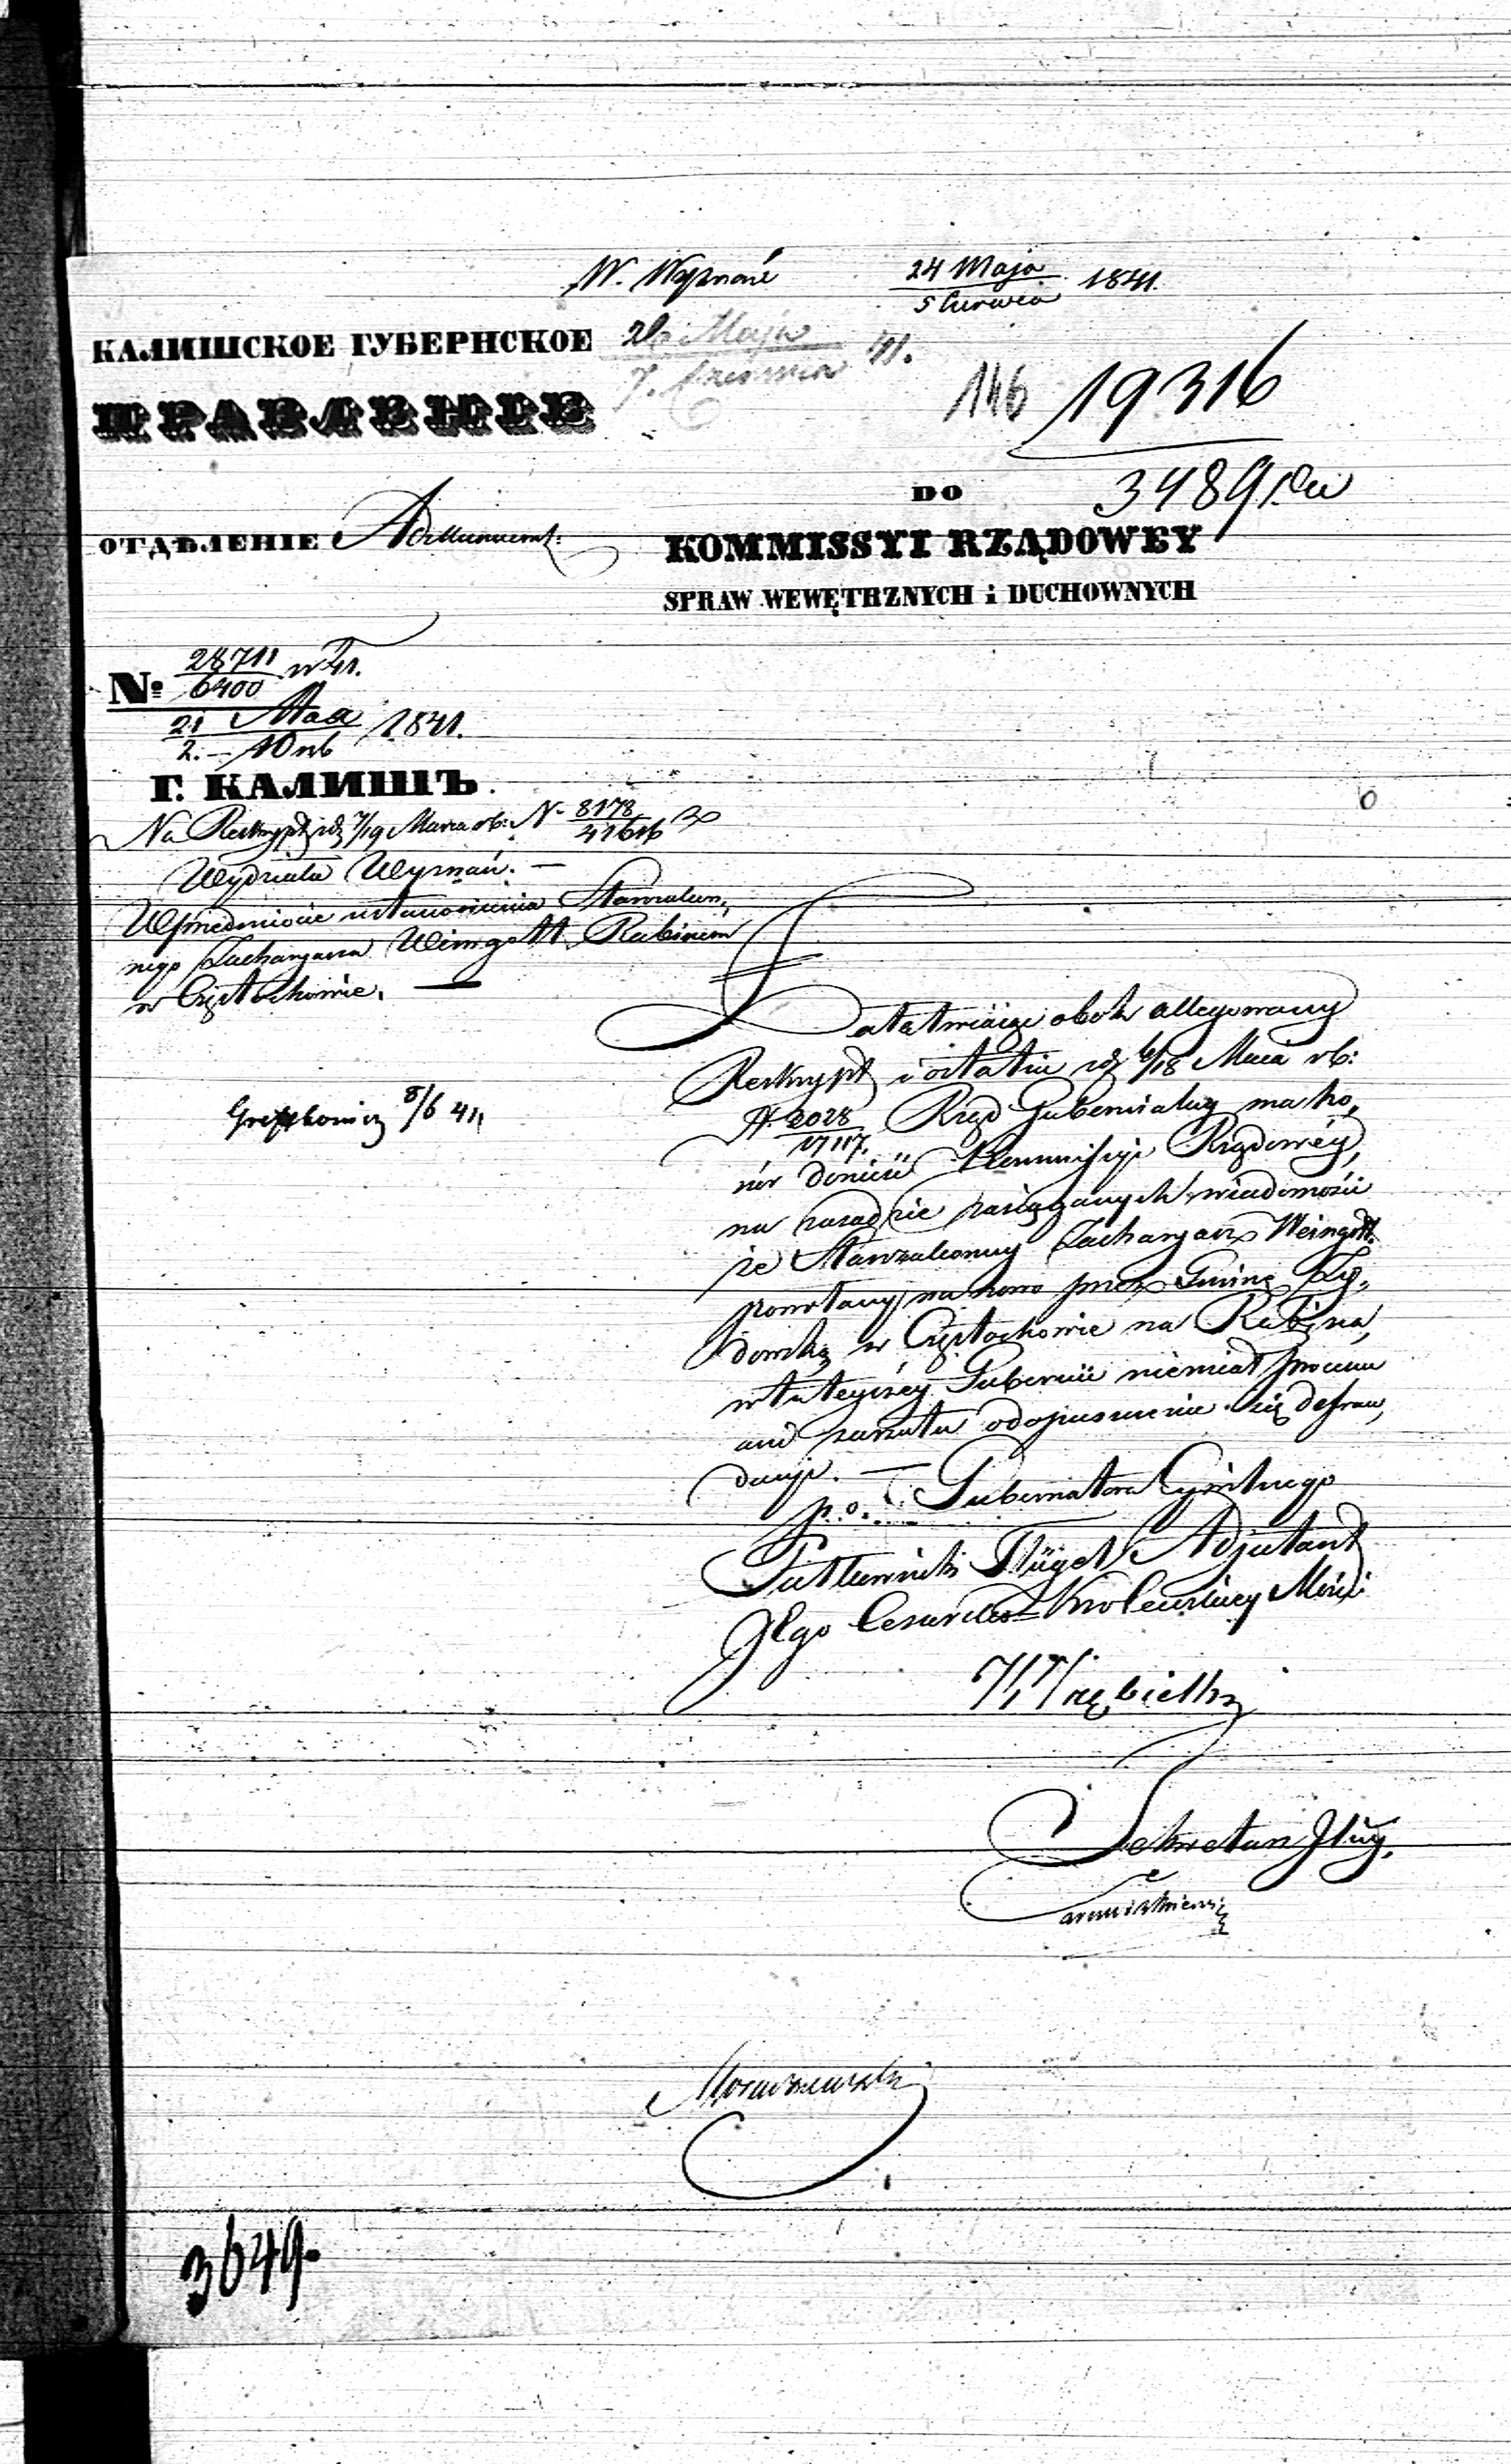 W. Wyznań
24 Maja
5 Czerwca 1841.
КАЛИШСКОЕ ГУБЕРНСКОЕ
26 Maja
7. Czerwca 41.
ПРАВЛЕНІЕ
146 19316
3489
DO
ОТДѢЛЕНІЕ
KOMMISSYI RZĄDOWEY
SPRAW WEWĘTRZNYCH i DUCHOWNYCH
№ 28711
6400
21 Мая
2. 1841.
Г. КАЛИШЪ.
Na Reskrypt z d. 7/19 Marca rb: N 8178
Wydziału Wyznań. —
W przedmiocie ustanowienia Starozakon,
nego Zacharyasza Weingott Rabinem
w Częstochowie. —
Załatwiaiąc obok allegowany
Reskrypt i ostatni z d. 6/18 Maia rb:
N 2028
17117. Rząd Gubernialny ma ho,
nor donieść Kommissyi Rządowéy,
na zasadzie zasiągnanych wiadomości
że Starozakonny Zacharyasz Weingott
powołany na nowo przez Gminę Ży,
dowską w Częstochowie na Rabina,
w tuteyszéy Gubernii niemiał processu
ani zarzutu o dopuszczenie się defrau,
dacyi. —
p.o. Gubernatora Cywilnego
Pułkownik Flügel Adjutant
JEgo Cesarsko Królewskiey Mości
Sekretarz Jlny.
8/6 41
3649.